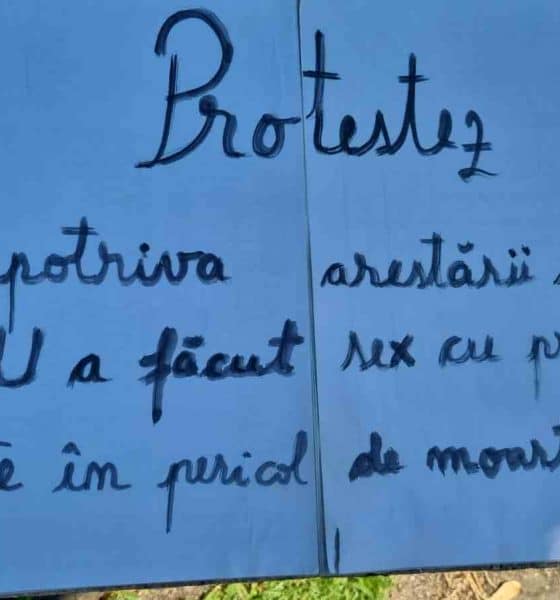 Protestez
potriva arestării
U a făcut sex cu p
e în pericol de moart